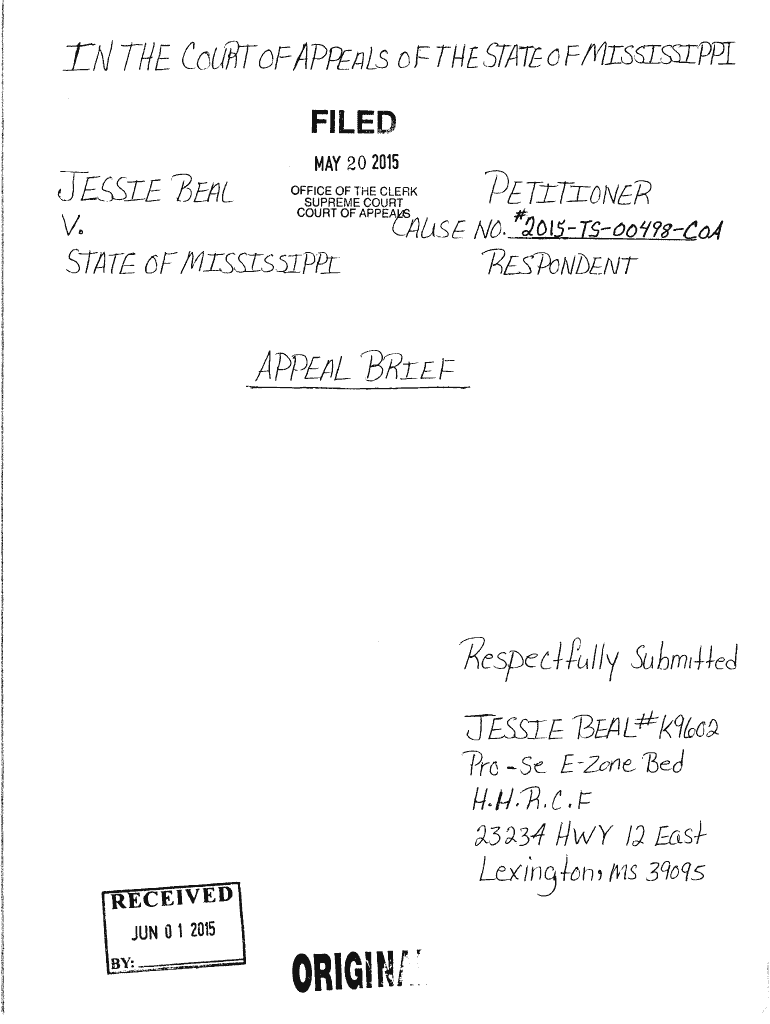 IN THE COURT OF APPEALS OF THE STATE OF MISSISSIPPI
FILED
MAY 20 2015
OFFICE OF THE CLERK
SUPREME COURT
COURT OF APPEALS
JESSIE BEAL PETITIONER
V. CAUSE NO. #2015-TS-00498-COA
STATE OF MISSISSIPPI RESPONDENT
APPEAL BRIEF
Respectfully Submitted
JESSIE BEAL #K9602
Pro-Se E-Zone Bed
H.H.R.C.F
23234 HWY 12 East
Lexington, MS 39095
RECEIVED
JUN 01 2015
BY:
ORIGINAL